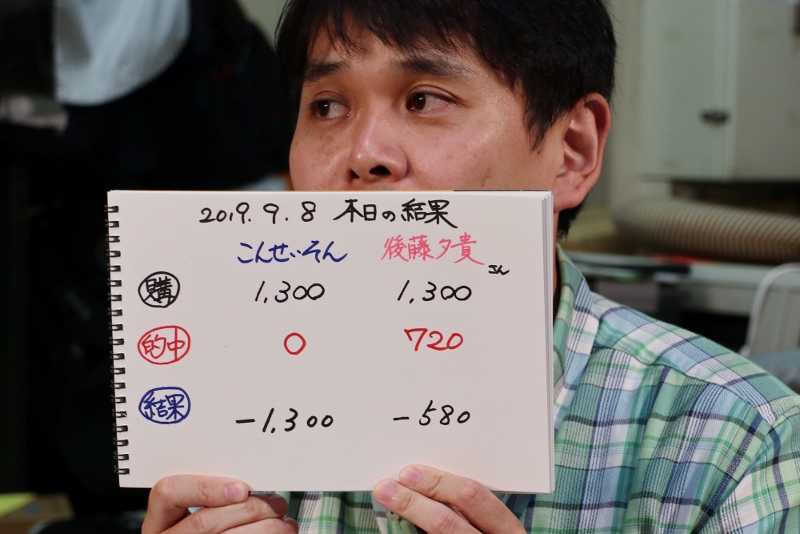 2019.9.8 本日の結果
こんせいそん 後藤夕貴さん
購 1,300 1,300
的中 0 720
結果 -1,300 -580